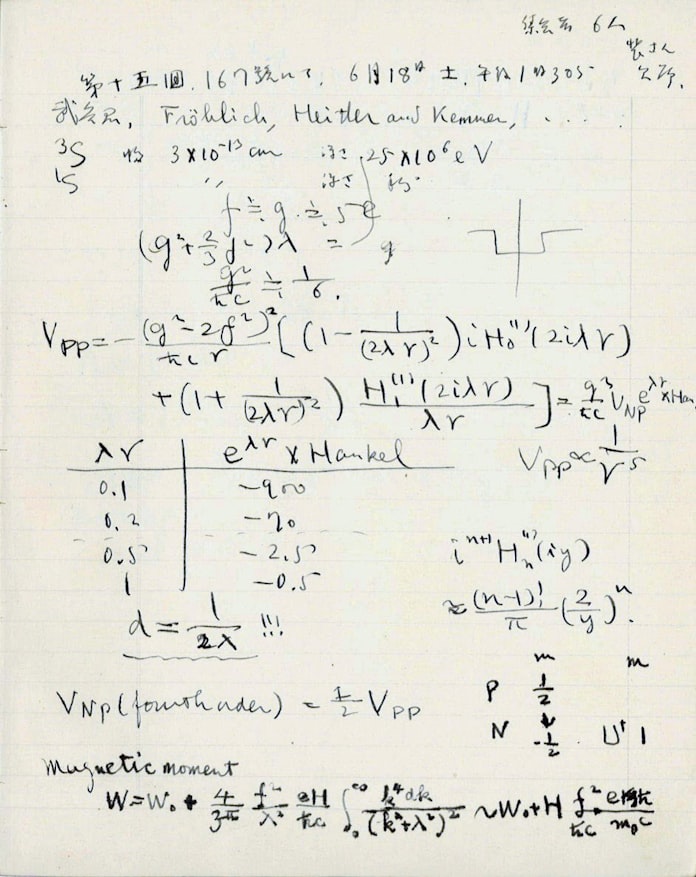 6人
欠席.
第十五回. 167号にて. 6月18日 土. 午後1時30分
武谷君, Fröhlich, Heitler and Kemmer, . . . .
³S 3×10⁻¹³ cm 深さ 25×10⁶ eV
¹S 〃 深さ
f ≒ g ≒ 5e
(g² + 2/3 f²) λ = g
g²/ħc ≒ 1/6.
V_PP = - (g²-2f²)²/ħc r [ (1 - 1/(2λr)²) i H₀⁽¹⁾(2iλr)
+ (1 + 1/(2λr)²) H₁⁽¹⁾(2iλr)/λr ] = g²/ħc V_NP e^λr × Han
V_PP ∝ 1/r⁵
λr e^λr × Hankel
0.1 -900
0.2 -70
0.5 -2.5
1 -0.5
i^(n+1) H_n⁽¹⁾(iy)
≈ (n-1)!/π (2/y)^n.
d = 1/2λ !!!
m m
P 1/2
N -1/2 U⁺ 1
V_NP (fourth order) = 1/2 V_PP
Magnetic moment
W = W₀ + 4/3π f²/λ² eH/ħc ∫₀^∞ k⁴dk/(k²+λ²)² ~ W₀ + H f²/ħc eħ/m_p c